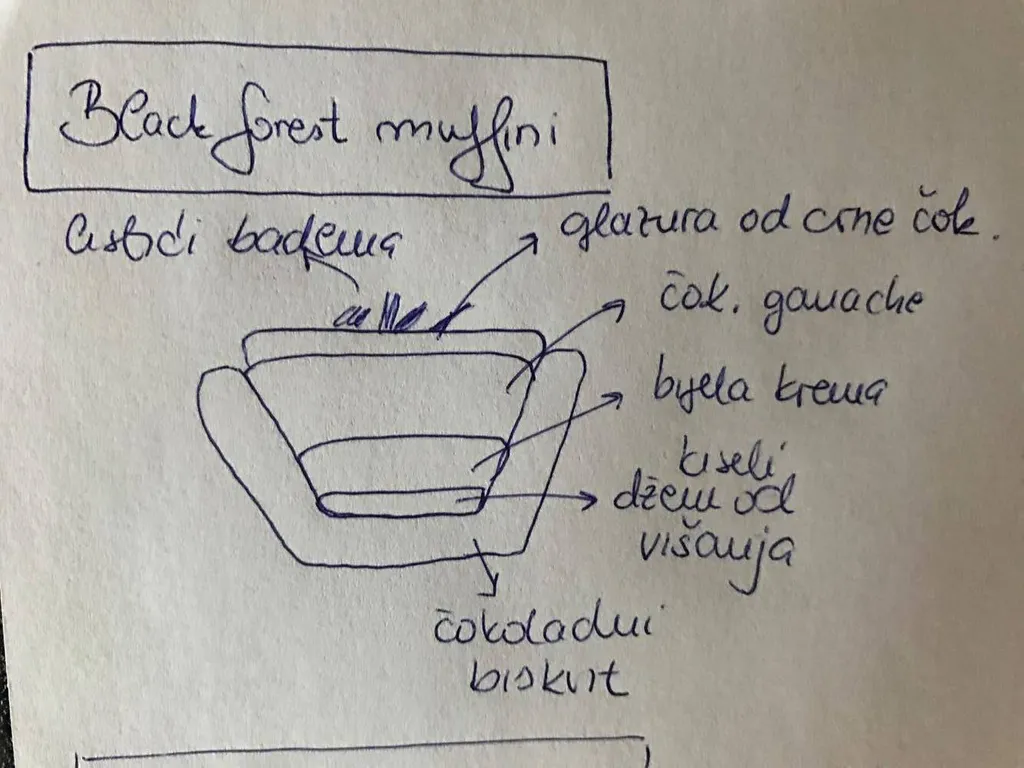 Black forest muffini
listići badema
glazura od crne čok.
čok. ganache
bijela krema
kiseli
džem od
višanja
čokoladni
biskvit